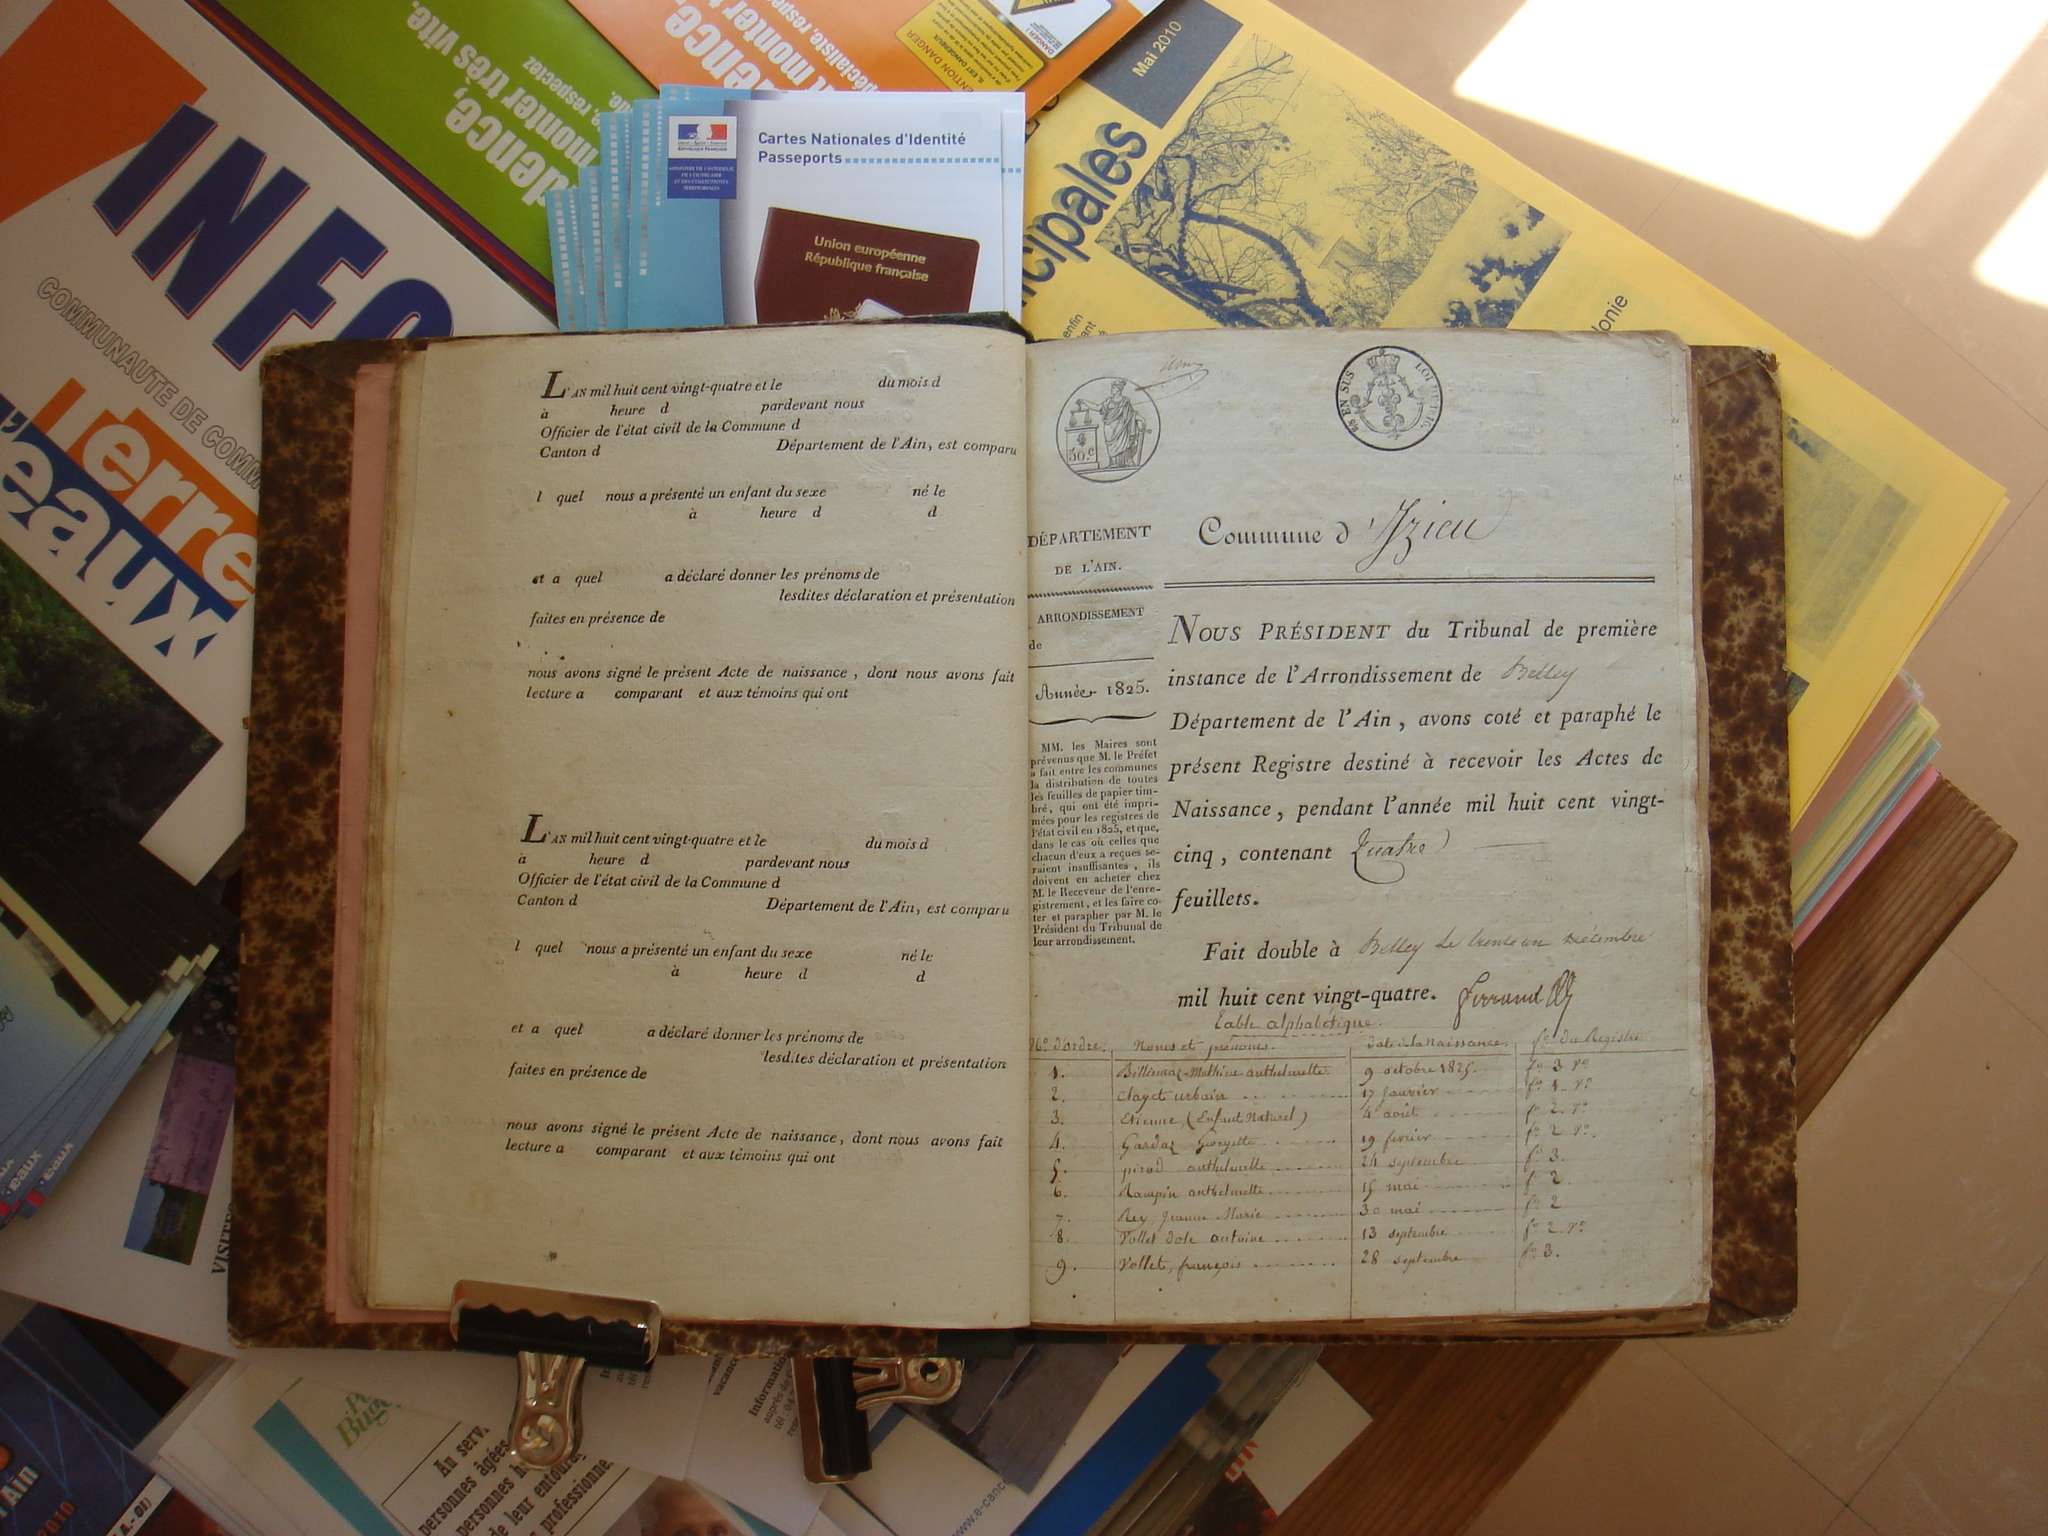 INFO
COMMUNAUTÉ DE COMM
Terre
d'eaux
dence,
monter très vite.
e, respectez
ence,
t monter t
pécialiste, respec
Mai 2010
icipales
lonie
Cartes Nationales d'Identité
Passeports
Union européenne
République française
L'AN mil huit cent vingt-quatre et le du mois d
à heure d pardevant nous
Officier de l'état civil de la Commune d
Canton d Département de l'Ain, est comparu
l quel nous a présenté un enfant du sexe né le
à heure d d
et a quel a déclaré donner les prénoms de
lesdites déclaration et présentation
faites en présence de
nous avons signé le présent Acte de naissance, dont nous avons fait
lecture a comparant et aux témoins qui ont
L'AN mil huit cent vingt-quatre et le du mois d
à heure d pardevant nous
Officier de l'état civil de la Commune d
Canton d Département de l'Ain, est comparu
l quel nous a présenté un enfant du sexe né le
à heure d d
et a quel a déclaré donner les prénoms de
lesdites déclaration et présentation
faites en présence de
nous avons signé le présent Acte de naissance, dont nous avons fait
lecture a comparant et aux témoins qui ont
50.c
DÉPARTEMENT
DE L'AIN.
ARRONDISSEMENT
de
Année 1825.
MM. les Maires sont
prévenus que M. le Préfet
a fait entre les communes
la distribution de toutes
les feuilles de papier tim-
bré, qui ont été impri-
mées pour les registres de
l'état civil en 1825, et que,
dans le cas où celles que
chacun d'eux a reçues se-
raient insuffisantes, ils
doivent en acheter chez
M. le Receveur de l'enre-
gistrement, et les faire co-
ter et parapher par M. le
Président du Tribunal de
leur arrondissement.
Commune d'Izieu
NOUS PRÉSIDENT du Tribunal de première
instance de l'Arrondissement de Belley
Département de l'Ain, avons coté et paraphé le
présent Registre destiné à recevoir les Actes de
Naissance, pendant l'année mil huit cent vingt-
cinq, contenant Quatre
feuillets.
Fait double à Belley le trente un décembre
mil huit cent vingt-quatre.
Table alphabétique.
N.o d'ordre. Noms et prénoms. Date de la Naissance. f.o du Registre
1. Billiemaz Mathieu anthelmette 9 octobre 1825. f.o 3 v.o
2. Clayet urbain 17 janvier f.o 1 v.o
3. Etienne, (Enfant Naturel) 4 août f.o 2 v.o
4. Gardaz Georgette 19 fevrier f.o 2 v.o
5. pirod anthelmette 24 septembre f.o 3.
6. Rampin anthelmette 15 mai f. 2.
7. Rey Jeanne Marie 30 mai f.o 2
8. Vollet dole antoine 13 septembre f.o 2. v.o
9. Vollet, françois 28 septembre f.o 3.
Au serv
personnes âgées
personnes h
de leur entourag
professionne
Informatio
www.e-canc